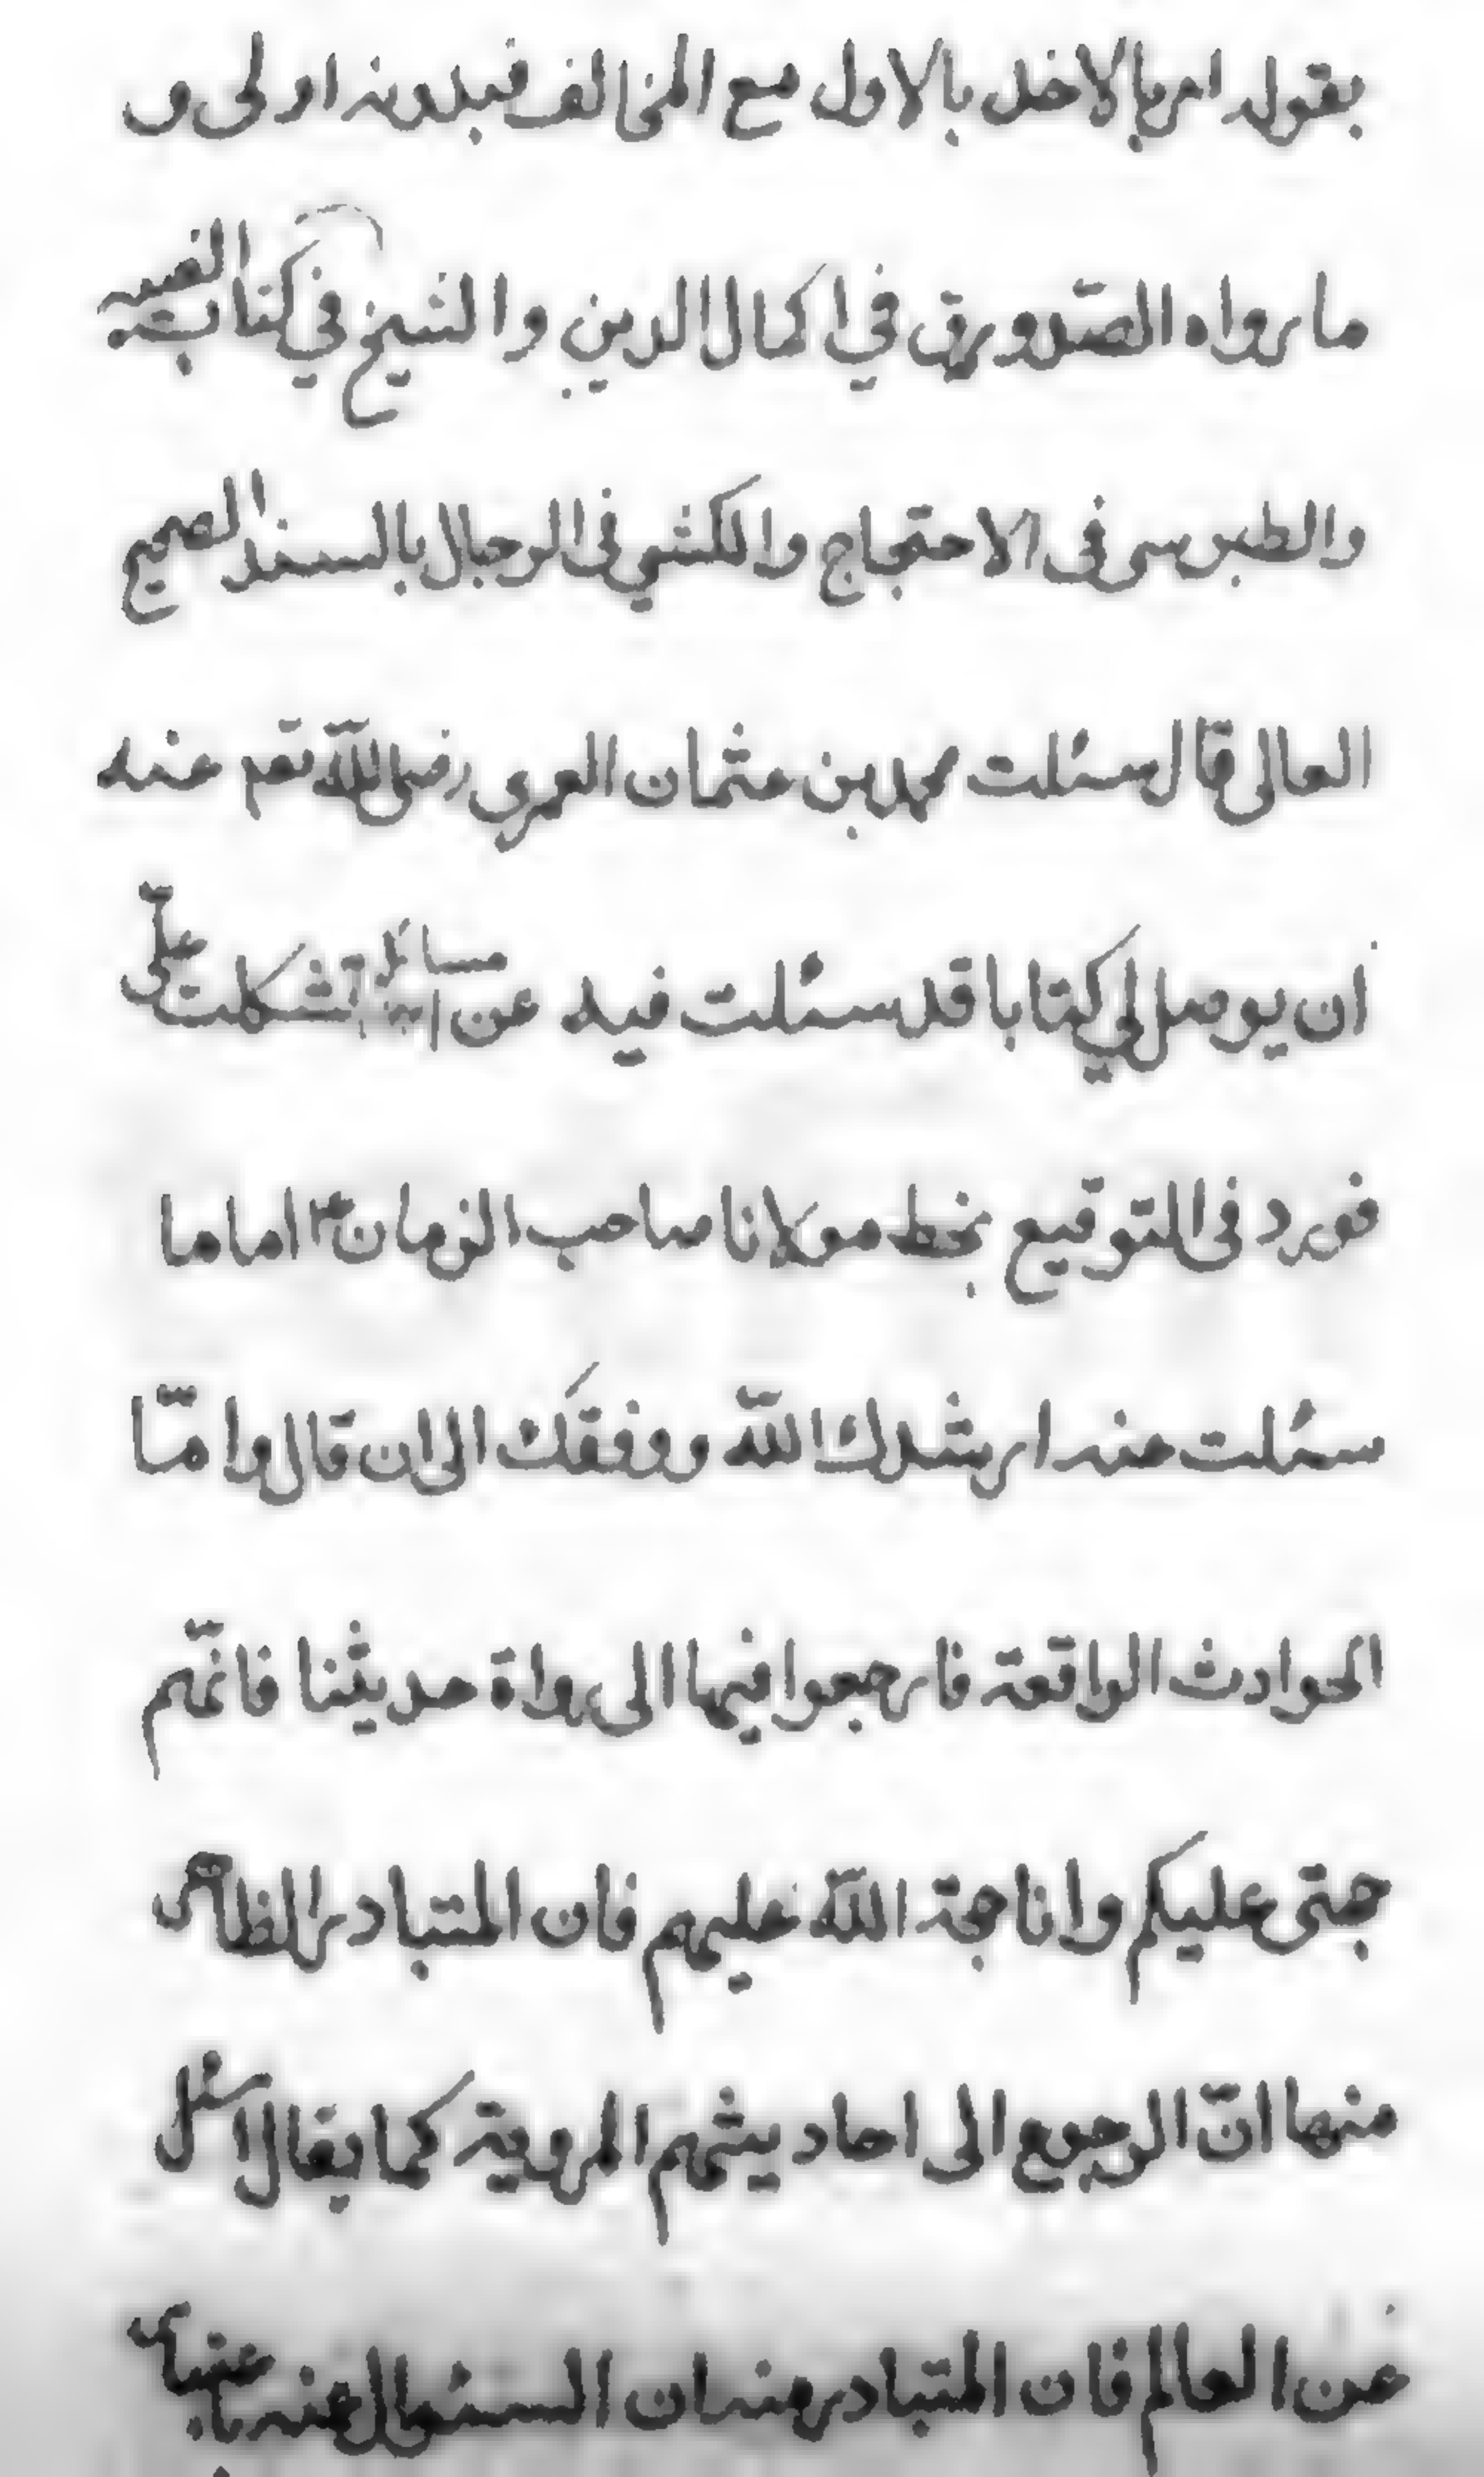 بقوله امر بالاخذ بالاول مع المخالف فبدونه اولى و
ما رواه الصدوق في اكمال الدين والشيخ في كتاب الغيبة
والطبرسى فى الاحتجاج والكشي فى الرجال بالسند الصحيح
العالى قال سئلت محمد بن عثمان العمري رضى الله تعم عنه
ان يوصل لي كتابا قد سئلت فيه عن مسائل اشكلت علىّ
فورد فى التوقيع بخط مولانا صاحب الزمان ع اما ما
سئلت عنه ارشدك الله ووفقك الى ان قال وامّا
الحوادث الواقعة فارجعوا فيها الى رواة حديثنا فانّهم
حجتى عليكم وانا حجة الله عليهم فان المتبادر الظاهر
منها انّ الرجوع الى احاديثهم المروية كما يقال اسئل
عن العالم فان المتبادر منه ان السئوال عنه